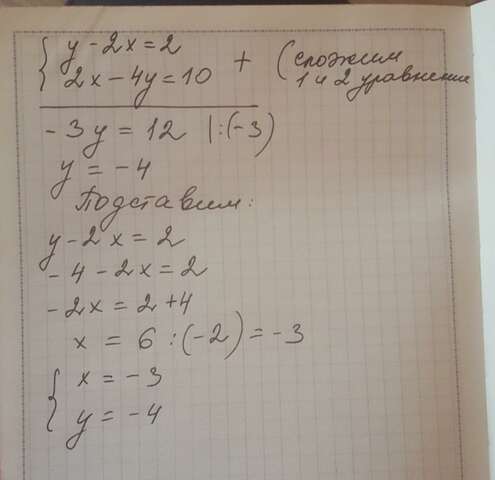 { y - 2x = 2
2x - 4y = 10 + (сложим 1 и 2 уравнения
- 3y = 12 |:(-3)
y = -4
Подставим:
y - 2x = 2
- 4 - 2x = 2
- 2x = 2 + 4
x = 6 : (-2) = -3
{ x = -3
y = -4